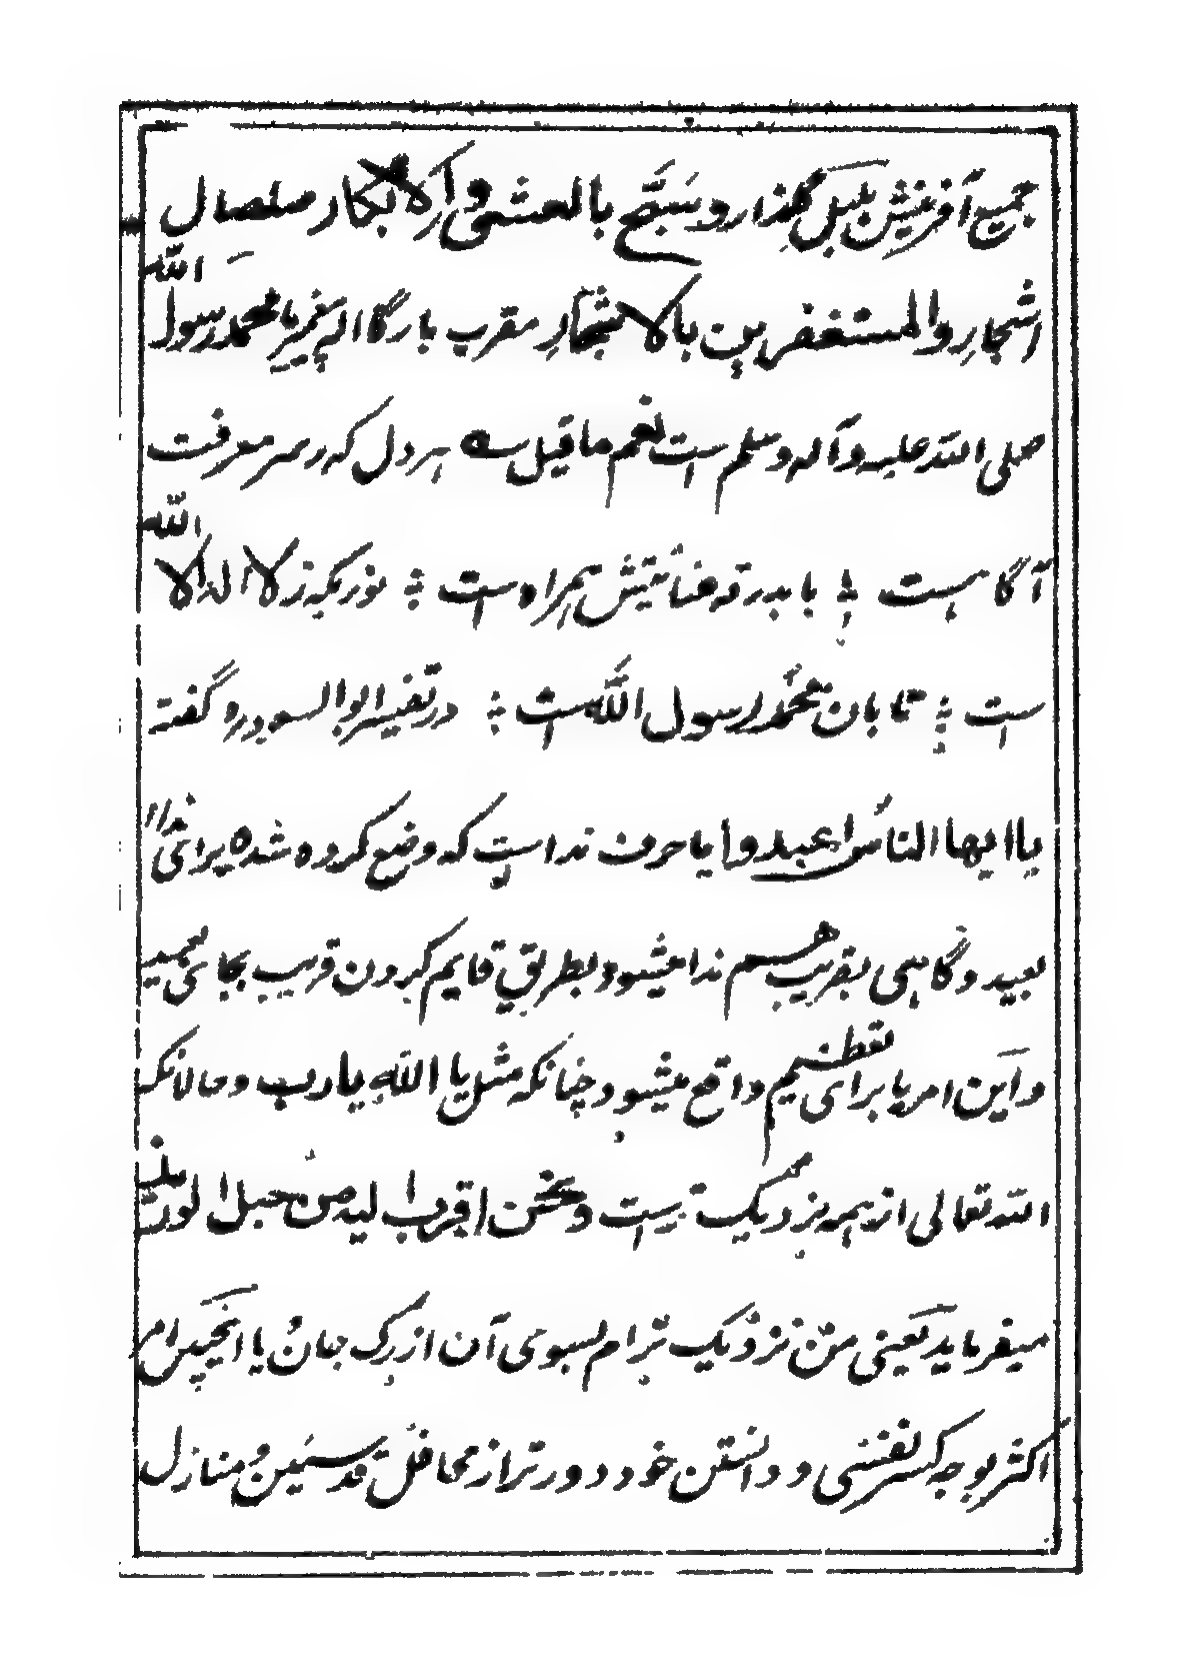 جمیع آفرینش بلبل گلذار وسبح بالعشی والابکار صلصال
اشجار والمستغفرین بالاسحار مقرب بارگاه اله پیغمبر ما محمد رسول الله
صلی الله علیه وآله وسلم ست نعم ما قیل سه هر دل که ز سر معرفت
آگاهست ؛ با بدرقه عنایتش همراه ست ؛ نوریکه ز لا اله الا الله
ست ؛ تابان محمد رسول الله ست ؛ در تفسیر ابو السعود گفته
یا ایها الناس اعبدوا یا حرف نداست که وضع کرده شده برای ندا
بعید وگاهی بقریب هم ندا میشود بطریق قایم کردن قریب بجای بعید
و این امر یا برای تعظیم واقع میشود چنانکه مثل یا الله یا رب و حالانکه
الله تعالی از همه نزدیک تر ست ونحن اقرب الیه من حبل الورید
میفرماید یعنی من نزدیک ترام بسوی آن از رگ جان یا اینچنین امر
اکثر بوجه کسر نفسی و دانستن خود دور تر از محافل قدسیین و منازل